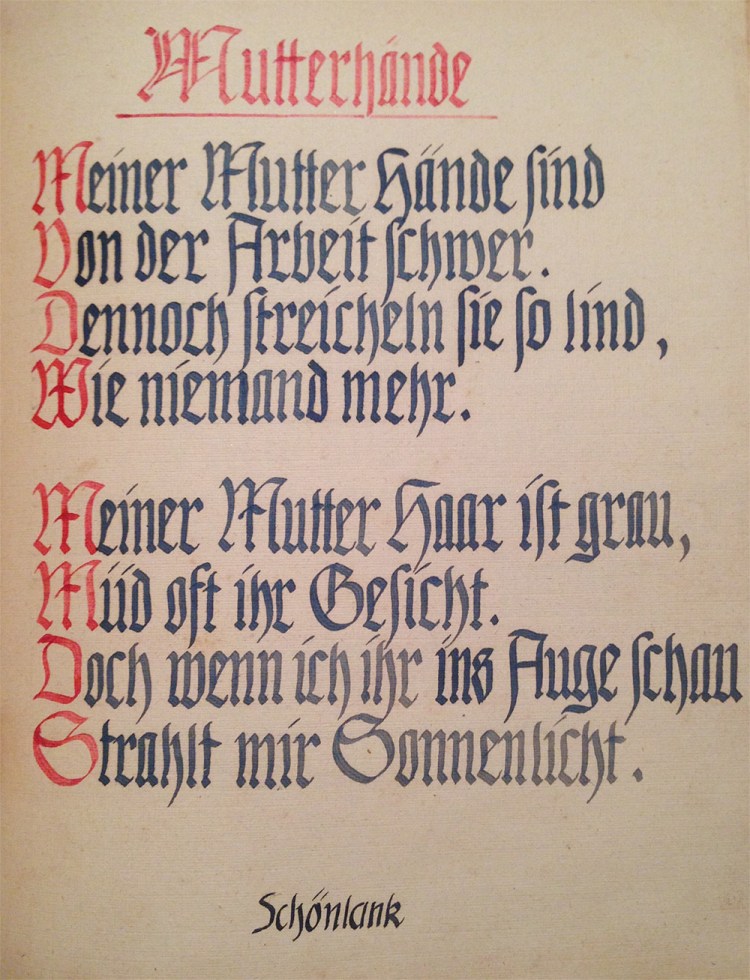 Mutterhände
Meiner Mutter Hände sind
Von der Arbeit schwer.
Dennoch streicheln sie so lind,
Wie niemand mehr.
Meiner Mutter Haar ist grau,
Müd oft ihr Gesicht.
Doch wenn ich ihr ins Auge schau
Strahlt mir Sonnenlicht.
Schönlank